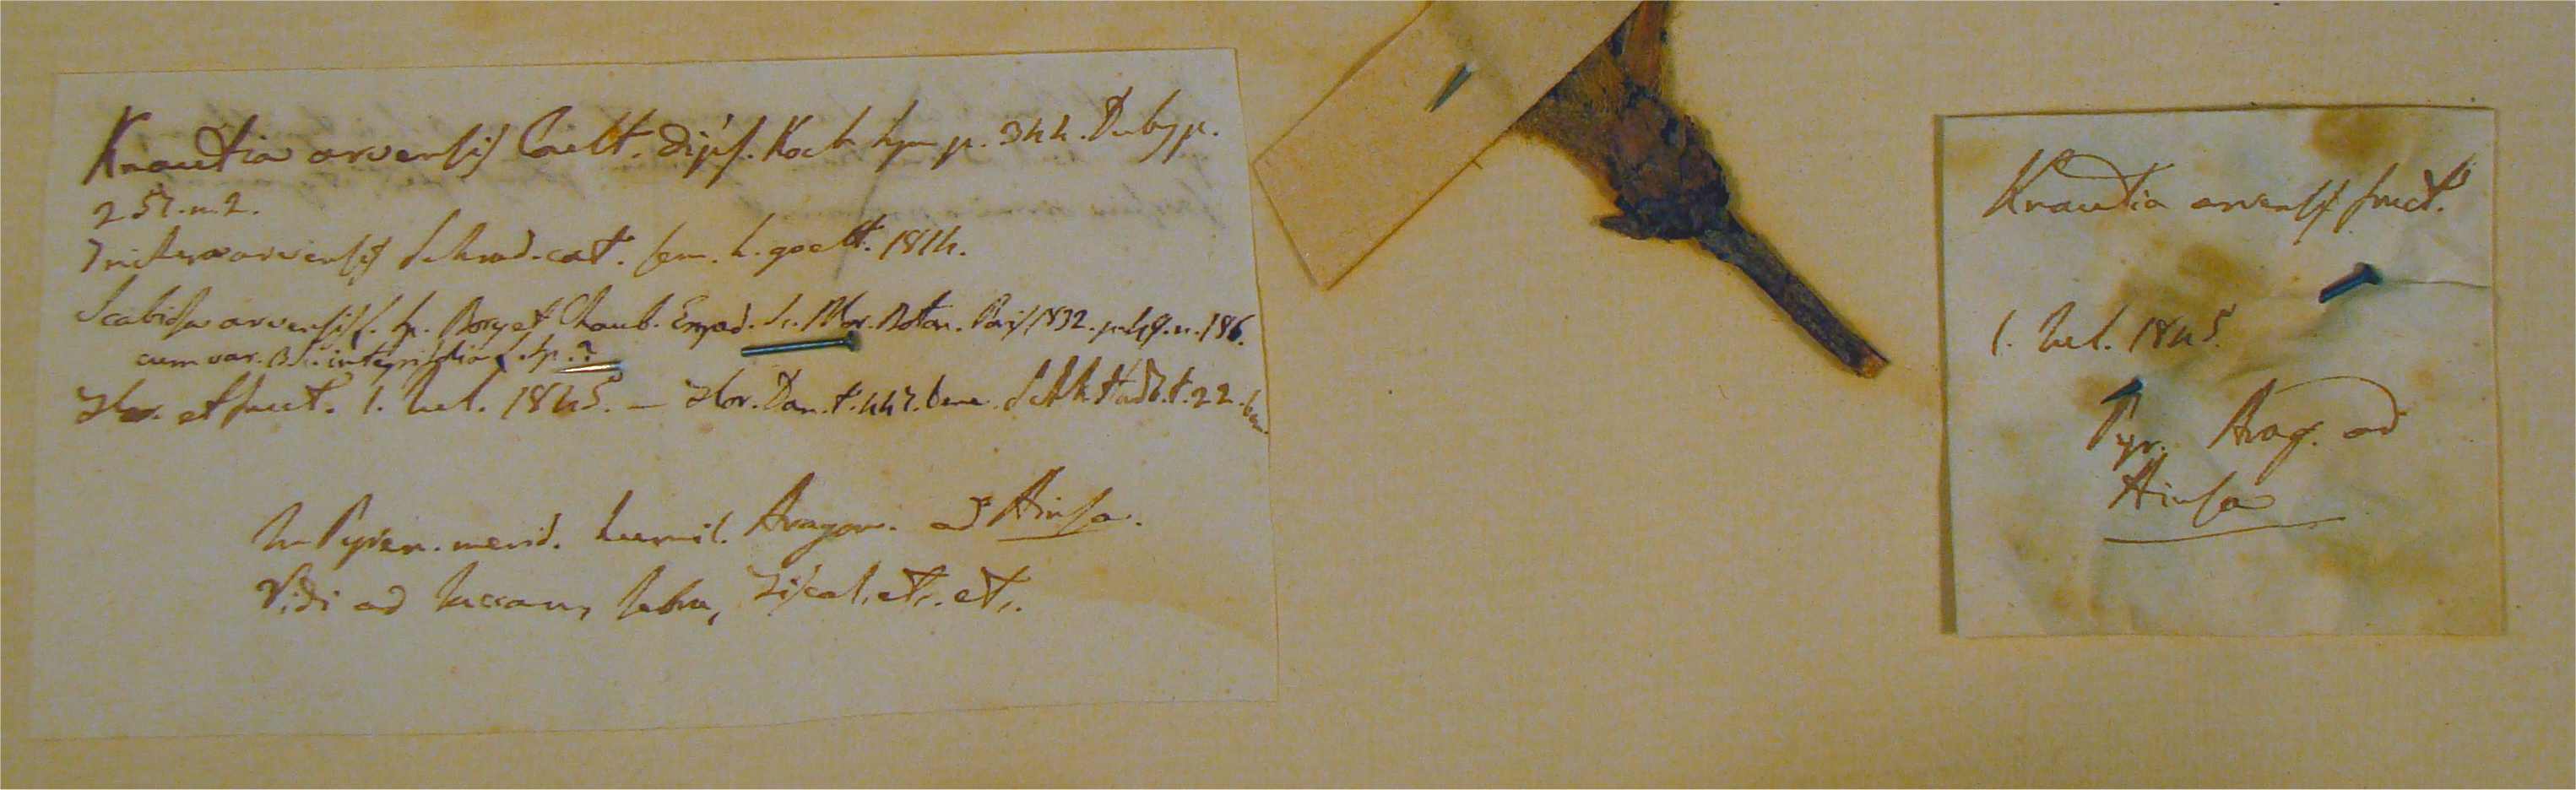 Knautia arvensis Coult. Dips. Koch syn p. 344. Duby p.
257. n. 2.
Trichera arvensis Schrad. cat. sem. h. goett. 1814.
Scabiosa arvensis L. sp. Bory et Chaub. Exped. sc. Mor. Botan. Paris 1832. p. 49. n. 186.
cum var. B. Sc. integrifolia L. sp. ?
Flor. et fruct. 1. Jul. 1845. — Flor. Dan. t. 447. bene. Schk. Handb. t. 22. bene.
In Pyren. merid. humil. Aragon. ad Ainsa.
Vidi ad Jaca, Fiscal, etc. etc.
Knautia arvensis fruct.
1. Jul. 1845.
Pyr. Arag. ad
Ainsa